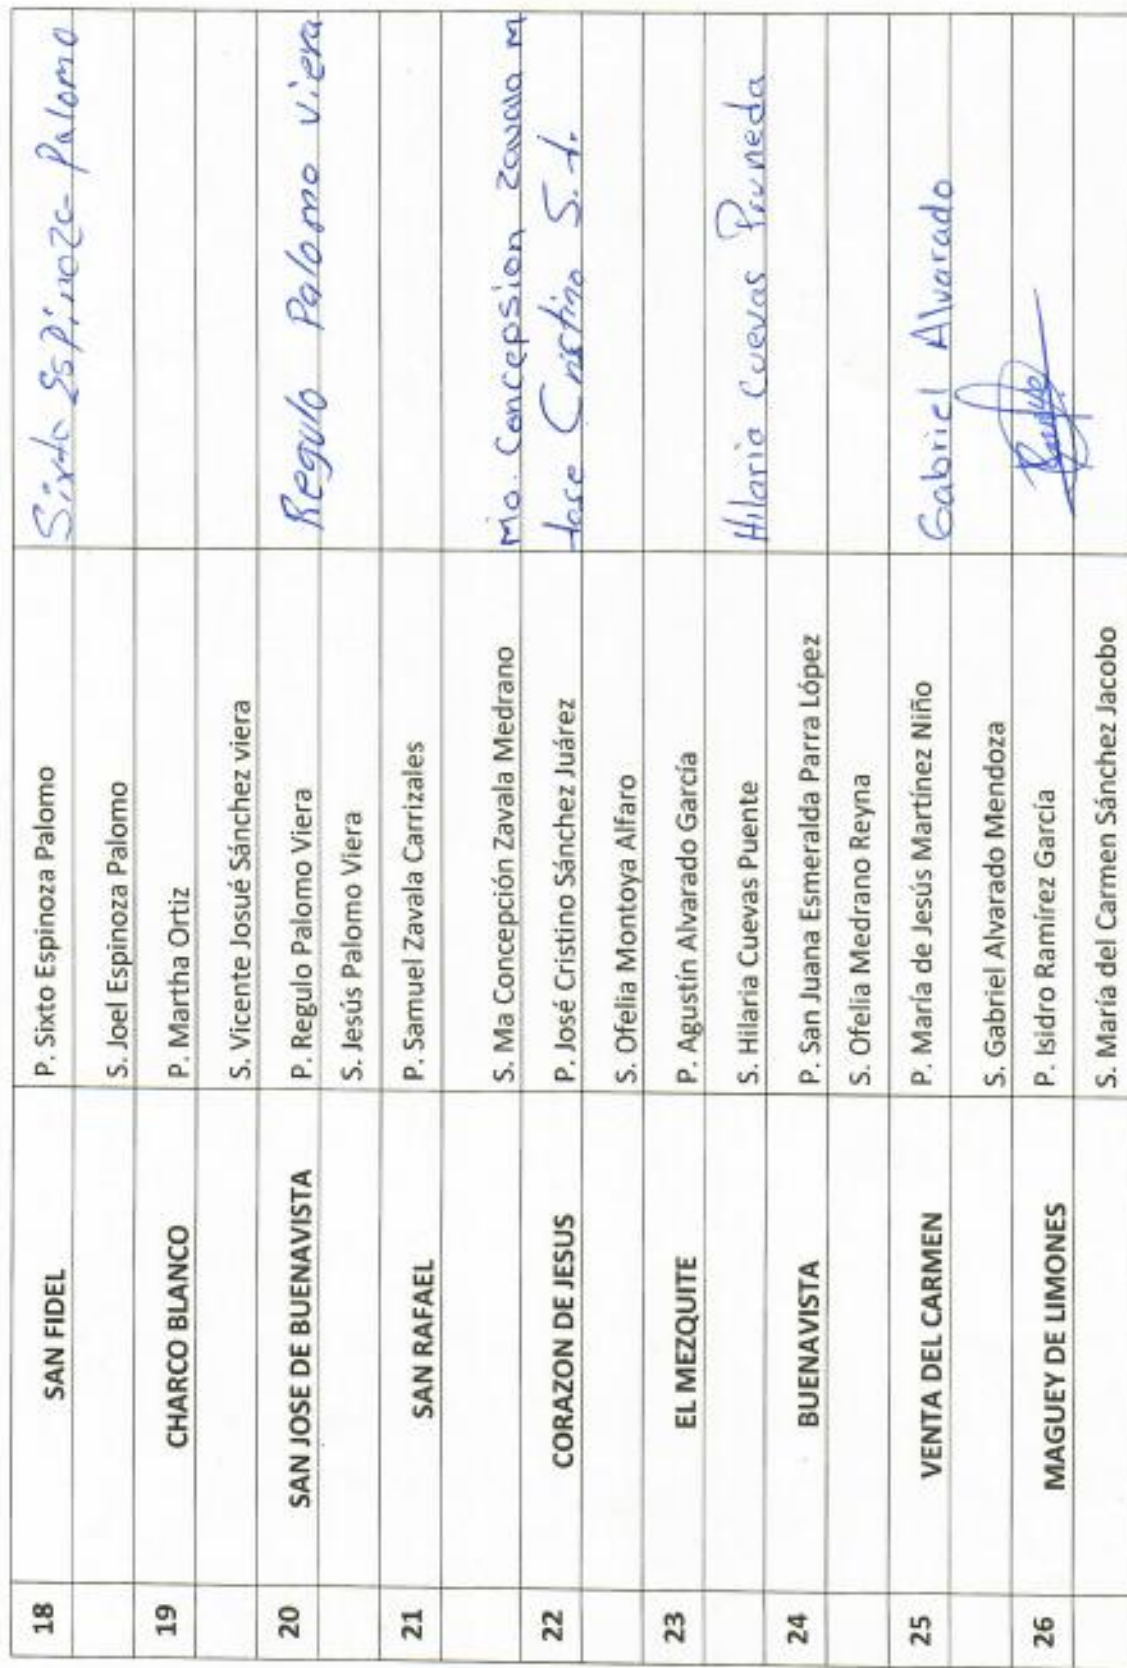 18 SAN FIDEL P. Sixto Espinoza Palomo Sixto Espinoza Palomo
S. Joel Espinoza Palomo
19 CHARCO BLANCO P. Martha Ortiz
S. Vicente Josué Sánchez viera
20 SAN JOSE DE BUENAVISTA P. Regulo Palomo Viera Regulo Palomo Viera
S. Jesús Palomo Viera
21 SAN RAFAEL P. Samuel Zavala Carrizales
S. Ma Concepción Zavala Medrano Ma. Concepsion Zavala M
22 CORAZON DE JESUS P. José Cristino Sánchez Juárez Jose Cristino S. J.
S. Ofelia Montoya Alfaro
23 EL MEZQUITE P. Agustín Alvarado García
S. Hilaria Cuevas Puente Hilaria Cuevas
24 BUENAVISTA P. San Juana Esmeralda Parra López
S. Ofelia Medrano Reyna
25 VENTA DEL CARMEN P. María de Jesús Martínez Niño Gabriel Alvarado
S. Gabriel Alvarado Mendoza
26 MAGUEY DE LIMONES P. Isidro Ramírez García
S. María del Carmen Sánchez Jacobo